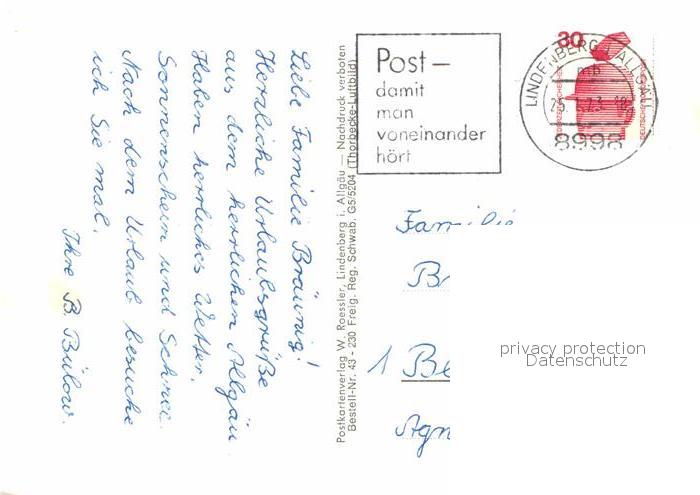 Liebe Familie Bräunig!
Herzliche Urlaubsgrüße
aus dem herrlichen Allgäu
Haben herrliches Wetter,
Sonnenschein und Schnee.
Nach dem Urlaub besuche
ich Sie mal.
Ihre B. Bülow.
Postkartenverlag W. Roessler, Lindenberg i. Allgäu — Nachdruck verboten
Bestell-Nr. 43 - 230 Freig. Reg. Schwab. G5/5204 (Thorbecke-Luftbild)
Post –
damit
man
voneinander
hört
LINDENBERG, ALLGÄU
8998
30
Familie
B
1 Be
Agn
privacy protection
Datenschutz